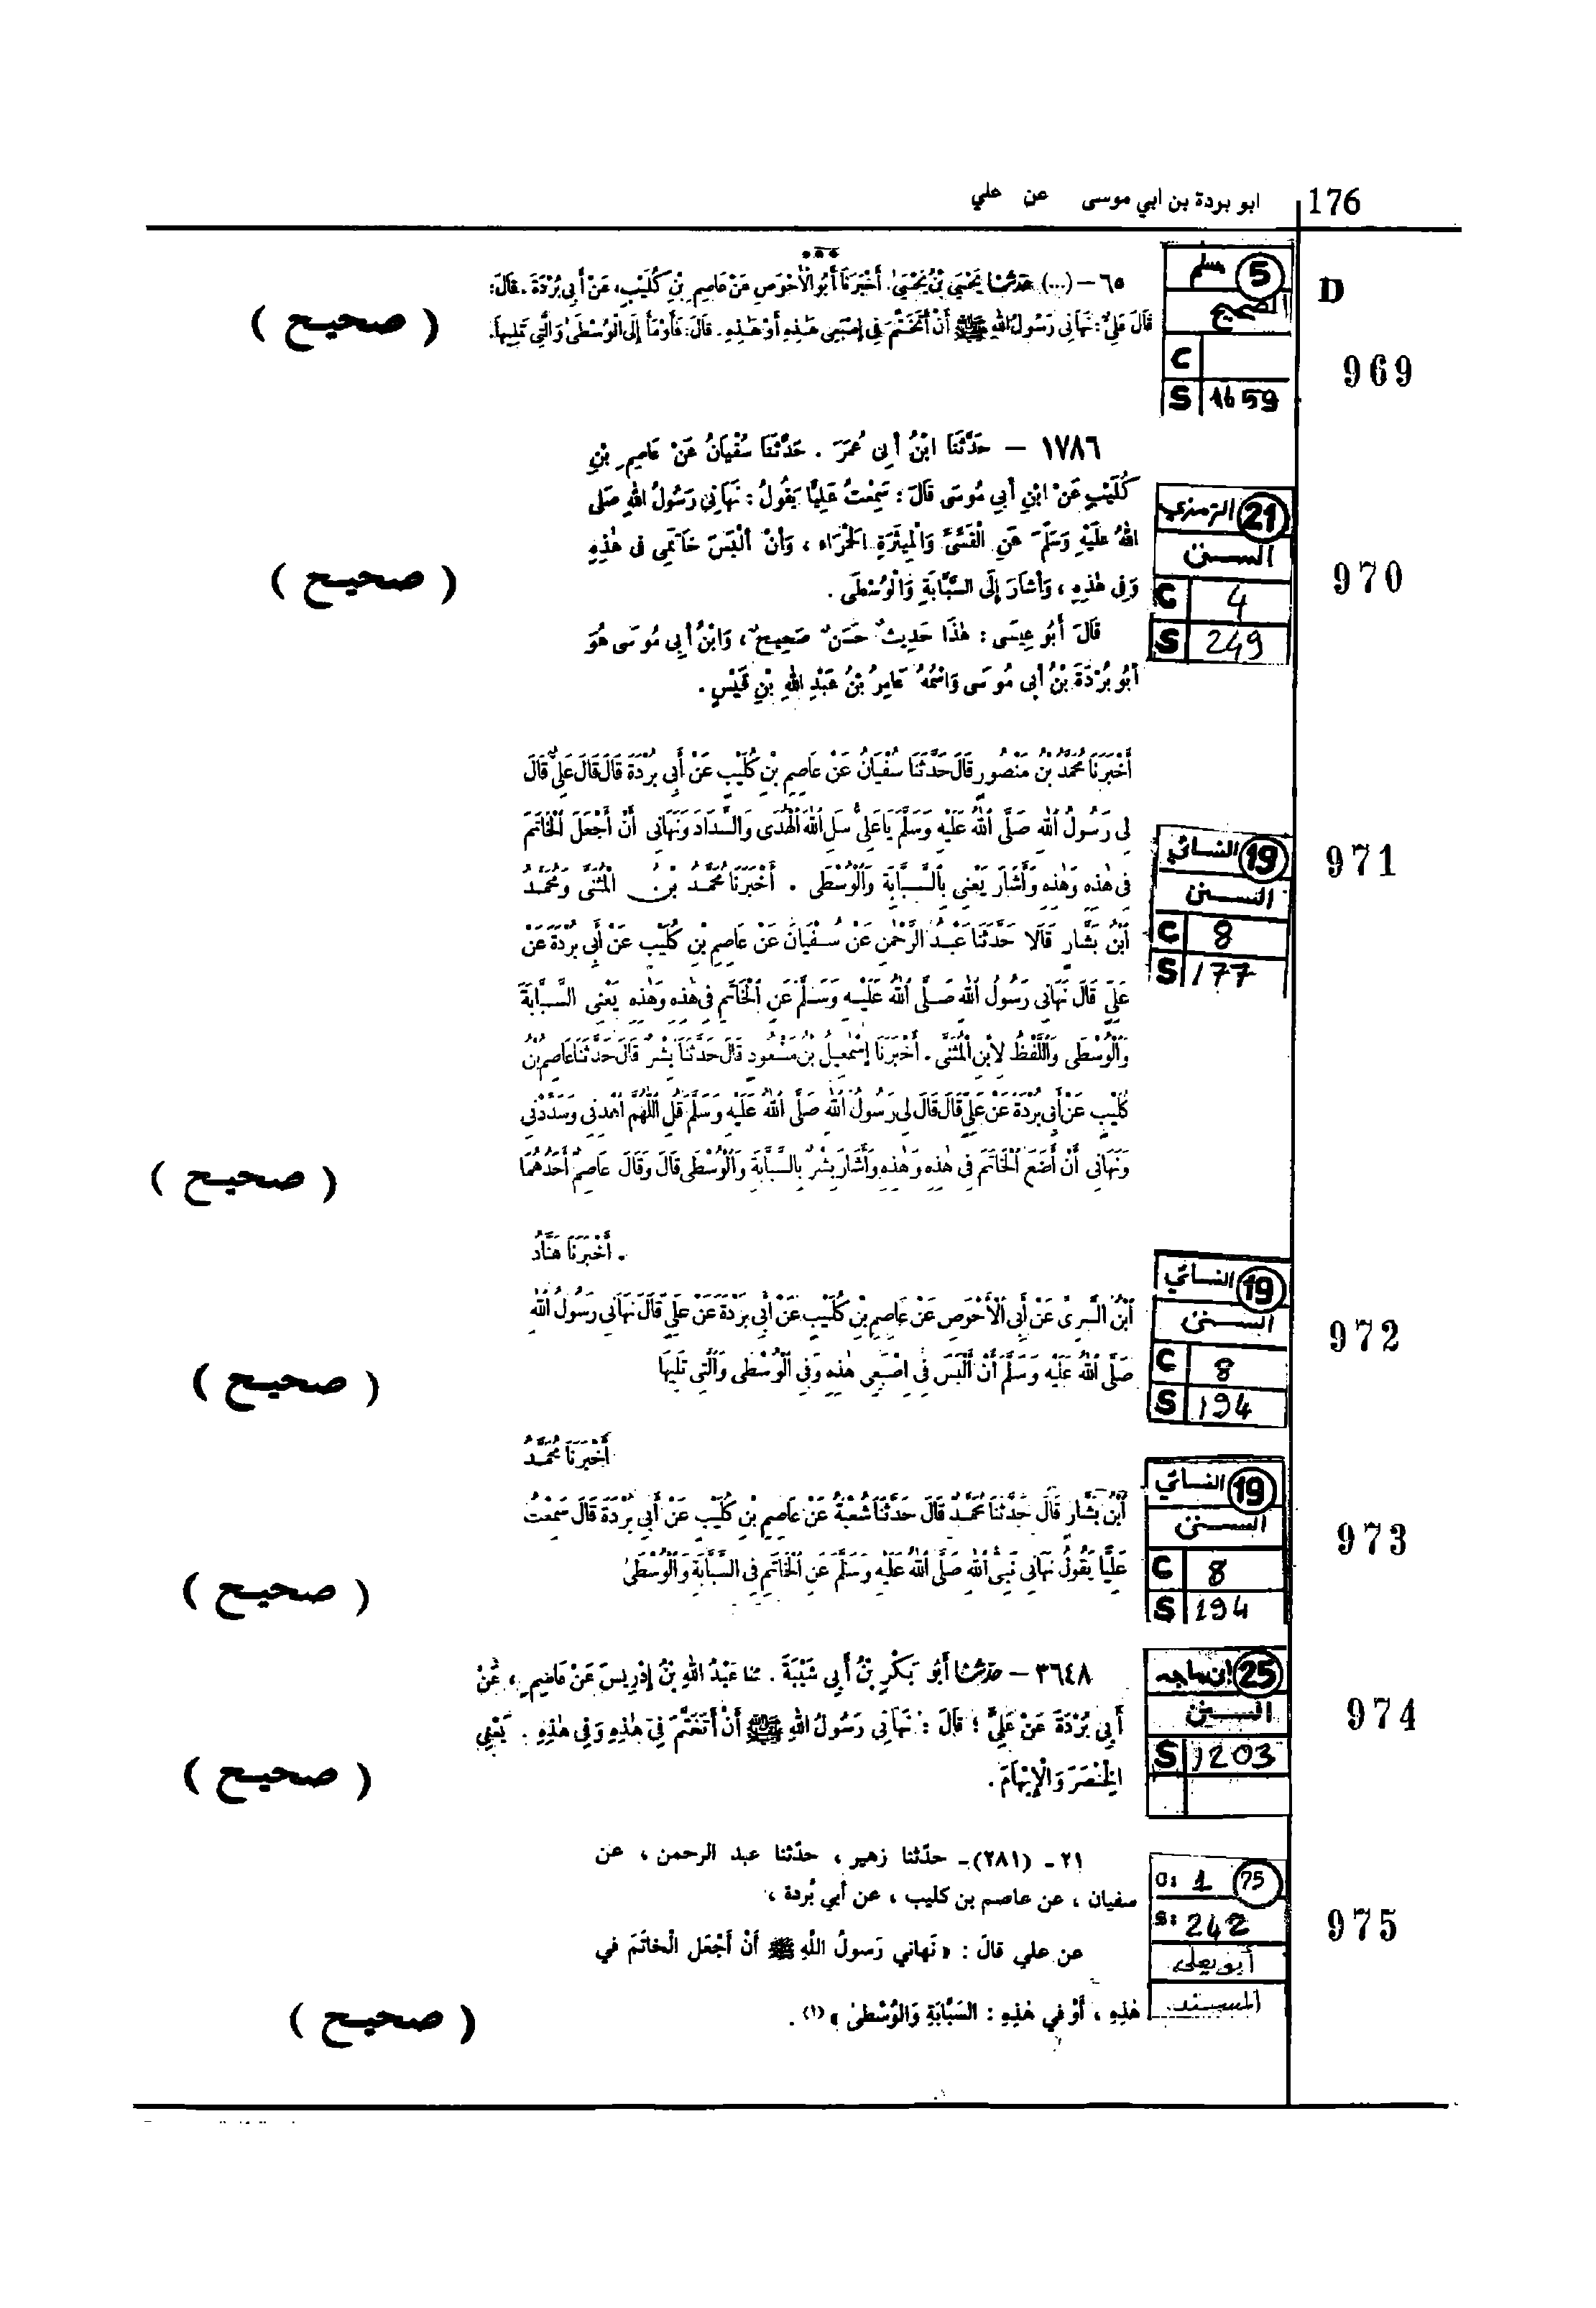 176
ابو بردة بن ابي موسى عن علي
D
969
5 مسلم
الصحيح
C
S 1659
٦٥ – (...) حدثنا يَحْيَى بْنُ يَحْيَىٰ. أَخْبَرَنَا أَبُو الْأَحْوَصِ عَنْ عَاصِمِ بْنِ كُلَيْبٍ، عَنْ أَبِي بُرْدَةَ. قَالَ:
قَالَ عَلِيٌّ: نَهَانِي رَسُولُ اللهِ ﷺ أَنْ أَتَخَتَّمَ فِي إِصْبَعِي هَذِهِ أَوْ هَذِهِ. قَالَ: فَأَوْمَأَ إِلَى الْوُسْطَىٰ وَالَّتِي تَلِيهَا.
( صحيح )
970
21 الترمذي
السنن
C 4
S 249
١٧٨٦ – حَدَّثَنَا ابْنُ أَبِي عُمَرَ . حَدَّثَنَا سُفْيَانُ عَنْ عَاصِمِ بْنِ
كُلَيْبٍ عَنْ ابْنِ أَبِي مُوسَى قَالَ : سَمِعْتُ عَلِيًّا يَقُولُ : نَهَانِي رَسُولُ اللهِ صَلَّى
اللهُ عَلَيْهِ وَسَلَّمَ عَنِ الْقَسِّيِّ وَالْمِيثَرَةِ الْحَمْرَاءِ ، وَأَنْ أَلْبَسَ خَاتَمِي فِي هٰذِهِ
وَفِي هٰذِهِ ، وَأَشَارَ إِلَى السَّبَّابَةِ وَالْوُسْطَى .
قَالَ أَبُو عِيسَى : هٰذَا حَدِيثٌ حَسَنٌ صَحِيحٌ ، وَابْنُ أَبِي مُوسَى هُوَ
أَبُو بُرْدَةَ بْنُ أَبِي مُوسَى وَاسْمُهُ عَامِرُ بْنُ عَبْدِ اللهِ بْنِ قَيْسٍ .
( صحيح )
971
19 النسائي
السنن
C 8
S 177
أَخْبَرَنَا مُحَمَّدُ بْنُ مَنْصُورٍ قَالَ حَدَّثَنَا سُفْيَانُ عَنْ عَاصِمِ بْنِ كُلَيْبٍ عَنْ أَبِي بُرْدَةَ قَالَ قَالَ عَلِيٌّ قَالَ
لِي رَسُولُ اللهِ صَلَّى اللهُ عَلَيْهِ وَسَلَّمَ يَا عَلِيُّ سَلِ اللهَ الْهُدَى وَالسَّدَادَ وَنَهَانِي أَنْ أَجْعَلَ الْخَاتَمَ
فِي هٰذِهِ وَهٰذِهِ وَأَشَارَ يَعْنِي بِالسَّبَّابَةِ وَالْوُسْطَى . أَخْبَرَنَا مُحَمَّدُ بْنُ الْمُثَنَّى وَمُحَمَّدُ
ابْنُ بَشَّارٍ قَالَا حَدَّثَنَا عَبْدُ الرَّحْمٰنِ عَنْ سُفْيَانَ عَنْ عَاصِمِ بْنِ كُلَيْبٍ عَنْ أَبِي بُرْدَةَ عَنْ
عَلِيٍّ قَالَ نَهَانِي رَسُولُ اللهِ صَلَّى اللهُ عَلَيْهِ وَسَلَّمَ عَنِ الْخَاتَمِ فِي هٰذِهِ وَهٰذِهِ يَعْنِي السَّبَّابَةَ
وَالْوُسْطَى وَاللَّفْظُ لِابْنِ الْمُثَنَّى . أَخْبَرَنَا إِسْمٰعِيلُ بْنُ مَسْعُودٍ قَالَ حَدَّثَنَا بِشْرٌ قَالَ حَدَّثَنَا عَاصِمُ بْنُ
كُلَيْبٍ عَنْ أَبِي بُرْدَةَ عَنْ عَلِيٍّ قَالَ قَالَ لِي رَسُولُ اللهِ صَلَّى اللهُ عَلَيْهِ وَسَلَّمَ قُلِ اللّٰهُمَّ اهْدِنِي وَسَدِّدْنِي
وَنَهَانِي أَنْ أَضَعَ الْخَاتَمَ فِي هٰذِهِ وَهٰذِهِ وَأَشَارَ بِشْرٌ بِالسَّبَّابَةِ وَالْوُسْطَى قَالَ وَقَالَ عَاصِمٌ أَحَدُهُمَا
( صحيح )
972
19 النسائي
السنن
C 8
S 194
. أَخْبَرَنَا هَنَّادُ
ابْنُ السَّرِيِّ عَنْ أَبِي الْأَحْوَصِ عَنْ عَاصِمِ بْنِ كُلَيْبٍ عَنْ أَبِي بُرْدَةَ عَنْ عَلِيٍّ قَالَ نَهَانِي رَسُولُ اللهِ
صَلَّى اللهُ عَلَيْهِ وَسَلَّمَ أَنْ أَلْبَسَ فِي إِصْبَعِي هٰذِهِ وَفِي الْوُسْطَى وَالَّتِي تَلِيهَا
( صحيح )
973
19 النسائي
السنن
C 8
S 194
أَخْبَرَنَا مُحَمَّدُ
ابْنُ بَشَّارٍ قَالَ حَدَّثَنَا مُحَمَّدٌ قَالَ حَدَّثَنَا شُعْبَةُ عَنْ عَاصِمِ بْنِ كُلَيْبٍ عَنْ أَبِي بُرْدَةَ قَالَ سَمِعْتُ
عَلِيًّا يَقُولُ نَهَانِي نَبِيُّ اللهِ صَلَّى اللهُ عَلَيْهِ وَسَلَّمَ عَنِ الْخَاتَمِ فِي السَّبَّابَةِ وَالْوُسْطَى
( صحيح )
974
25 ابن ماجه
السنن
S 1203
٣٦٤٨ – حدثنا أَبُو بَكْرِ بْنُ أَبِي شَيْبَةَ . ثنا عَبْدُ اللهِ بْنُ إِدْرِيسَ عَنْ عَاصِمٍ ، عَنْ
أَبِي بُرْدَةَ عَنْ عَلِيٍّ ؛ قَالَ : نَهَانِي رَسُولُ اللهِ ﷺ أَنْ أَتَخَتَّمَ فِي هٰذِهِ وَفِي هٰذِهِ . يَعْنِي
الْخِنْصَرَ وَالْإِبْهَامَ .
( صحيح )
975
C: 1 75
S: 242
أبو يعلى
المسند
٢١ - (٢٨١) - حدّثنا زهير ، حدّثنا عبد الرحمن ، عن
سفيان ، عن عاصم بن كليب ، عن أبي بُردة ،
عن علي قالَ : « نَهاني رَسولُ اللهِ ﷺ أَنْ أَجْعَل الْخاتَمَ في
هٰذِهِ ، أَوْ في هٰذِهِ : السَّبَّابَةِ وَالوُسْطىٰ » (١) .
( صحيح )